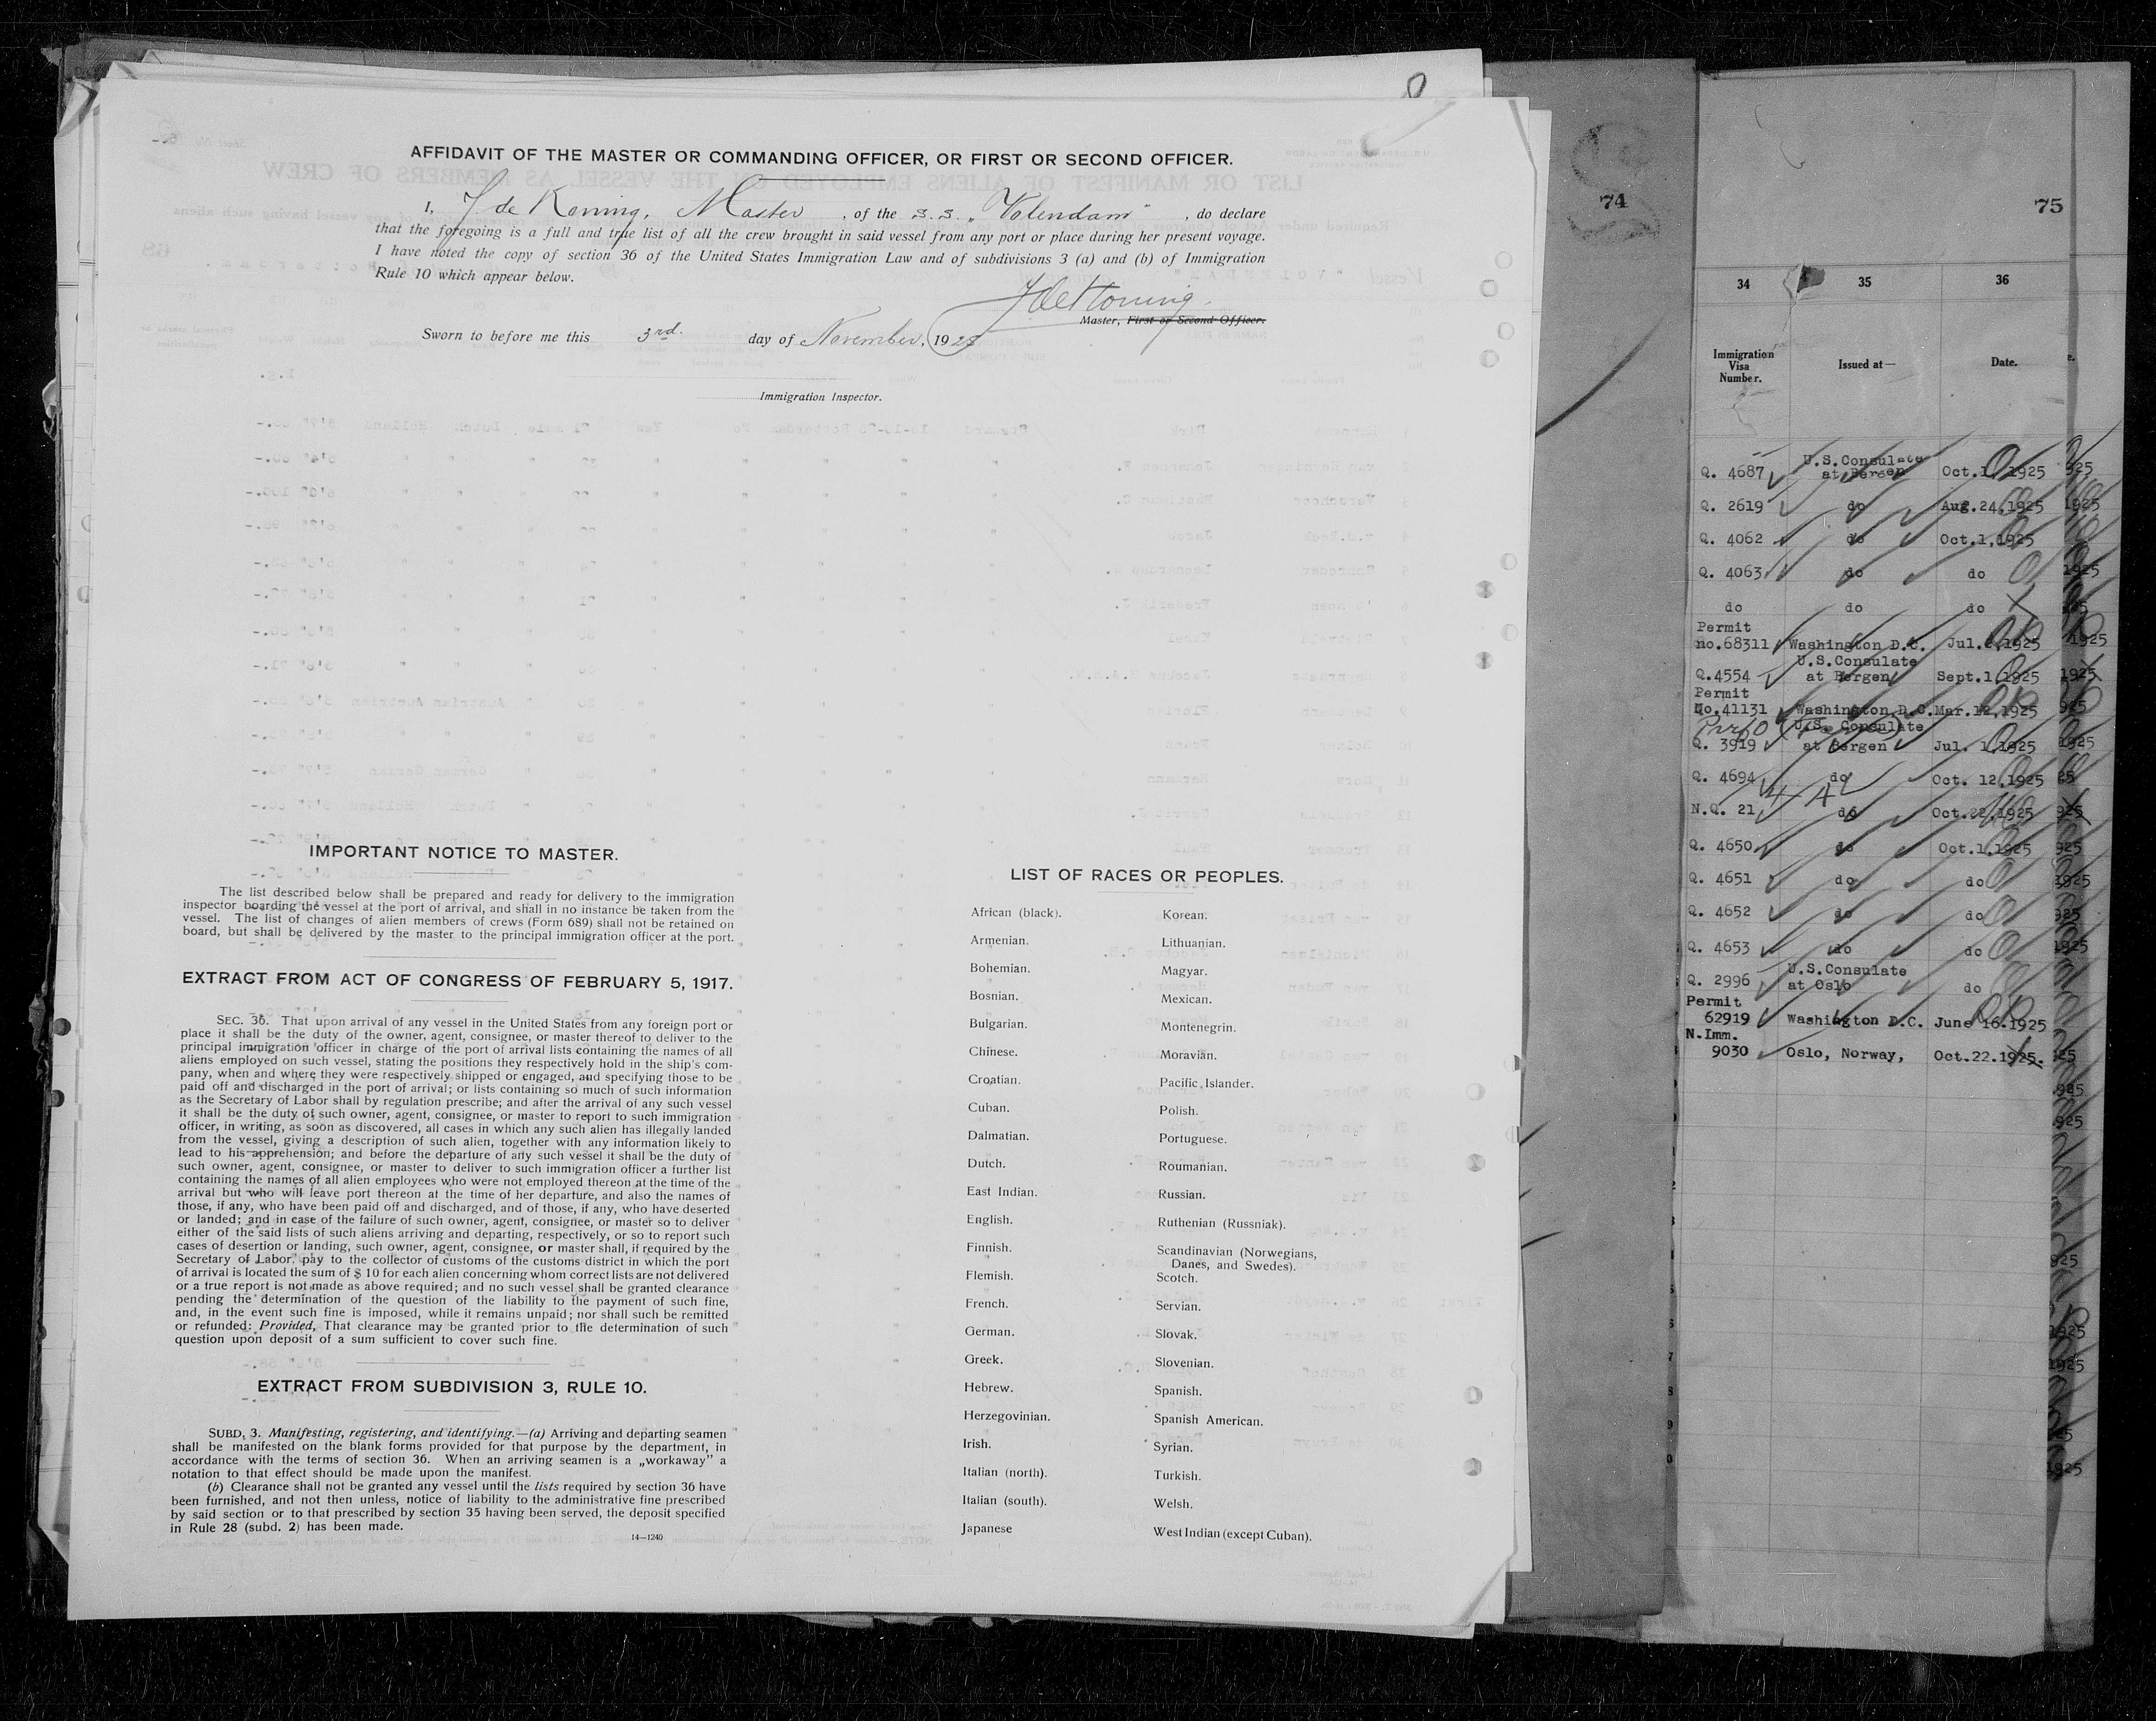 AFFIDAVIT OF THE MASTER OR COMMANDING OFFICER, OR FIRST OR SECOND OFFICER.
I, J de Koning, Master, of the S.S. „Volendam", do declare
that the foregoing is a full and true list of all the crew brought in said vessel from any port or place during her present voyage.
I have noted the copy of section 36 of the United States Immigration Law and of subdivisions 3 (a) and (b) of Immigration
Rule 10 which appear below.
J de Koning.
Master, First or Second Officer.
Sworn to before me this 3rd. day of November, 1925
Immigration Inspector.
IMPORTANT NOTICE TO MASTER.
The list described below shall be prepared and ready for delivery to the immigration
inspector boarding the vessel at the port of arrival, and shall in no instance be taken from the
vessel. The list of changes of alien members of crews (Form 689) shall not be retained on
board, but shall be delivered by the master to the principal immigration officer at the port.
EXTRACT FROM ACT OF CONGRESS OF FEBRUARY 5, 1917.
SEC. 36. That upon arrival of any vessel in the United States from any foreign port or
place it shall be the duty of the owner, agent, consignee, or master thereof to deliver to the
principal immigration officer in charge of the port of arrival lists containing the names of all
aliens employed on such vessel, stating the positions they respectively hold in the ship's com-
pany, when and where they were respectively shipped or engaged, and specifying those to be
paid off and discharged in the port of arrival; or lists containing so much of such information
as the Secretary of Labor shall by regulation prescribe; and after the arrival of any such vessel
it shall be the duty of such owner, agent, consignee, or master to report to such immigration
officer, in writing, as soon as discovered, all cases in which any such alien has illegally landed
from the vessel, giving a description of such alien, together with any information likely to
lead to his apprehension; and before the departure of any such vessel it shall be the duty of
such owner, agent, consignee, or master to deliver to such immigration officer a further list
containing the names of all alien employees who were not employed thereon at the time of the
arrival but who will leave port thereon at the time of her departure, and also the names of
those, if any, who have been paid off and discharged, and of those, if any, who have deserted
or landed; and in case of the failure of such owner, agent, consignee, or master so to deliver
either of the said lists of such aliens arriving and departing, respectively, or so to report such
cases of desertion or landing, such owner, agent, consignee, or master shall, if required by the
Secretary of Labor, pay to the collector of customs of the customs district in which the port
of arrival is located the sum of $ 10 for each alien concerning whom correct lists are not delivered
or a true report is not made as above required; and no such vessel shall be granted clearance
pending the determination of the question of the liability to the payment of such fine,
and, in the event such fine is imposed, while it remains unpaid; nor shall such be remitted
or refunded: Provided, That clearance may be granted prior to the determination of such
question upon deposit of a sum sufficient to cover such fine.
EXTRACT FROM SUBDIVISION 3, RULE 10.
SUBD. 3. Manifesting, registering, and identifying.—(a) Arriving and departing seamen
shall be manifested on the blank forms provided for that purpose by the department, in
accordance with the terms of section 36. When an arriving seamen is a „workaway" a
notation to that effect should be made upon the manifest.
(b) Clearance shall not be granted any vessel until the lists required by section 36 have
been furnished, and not then unless, notice of liability to the administrative fine prescribed
by said section or to that prescribed by section 35 having been served, the deposit specified
in Rule 28 (subd. 2) has been made.
14—1240
LIST OF RACES OR PEOPLES.
African (black).
Armenian.
Bohemian.
Bosnian.
Bulgarian.
Chinese.
Croatian.
Cuban.
Dalmatian.
Dutch.
East Indian.
English.
Finnish.
Flemish.
French.
German.
Greek.
Hebrew.
Herzegovinian.
Irish.
Italian (north).
Italian (south).
Japanese
Korean.
Lithuanian.
Magyar.
Mexican.
Montenegrin.
Moravian.
Pacific Islander.
Polish.
Portuguese.
Roumanian.
Russian.
Ruthenian (Russniak).
Scandinavian (Norwegians,
Danes, and Swedes).
Scotch.
Servian.
Slovak.
Slovenian.
Spanish.
Spanish American.
Syrian.
Turkish.
Welsh.
West Indian (except Cuban).
74
75
34 35 36
Immigration Visa Number. Issued at— Date.
Q. 4687 U.S.Consulate at Bergen Oct.1,1925
Q. 2619 do Aug.24,1925
Q. 4062 do Oct.1,1925
Q. 4063 do do
do do do
Permit
no.68311 Washington D.C. Jul. 1925
Q.4554 U.S.Consulate at Bergen Sept.1,1925
Permit
No.41131 Washington D.C. Mar.12,1925
Q. 3919 U.S. Consulate at Bergen Jul. 1,1925
Q. 4694 do Oct. 12,1925
N.Q. 21 do Oct.22,1925
Q. 4650 do Oct.1,1925
Q. 4651 do do
Q. 4652 do do
Q. 4653 do do
Q. 2996 U.S.Consulate at Oslo do
Permit
62919 Washington D.C. June 16.1925
N.Imm.
9030 Oslo, Norway, Oct.22.1925.